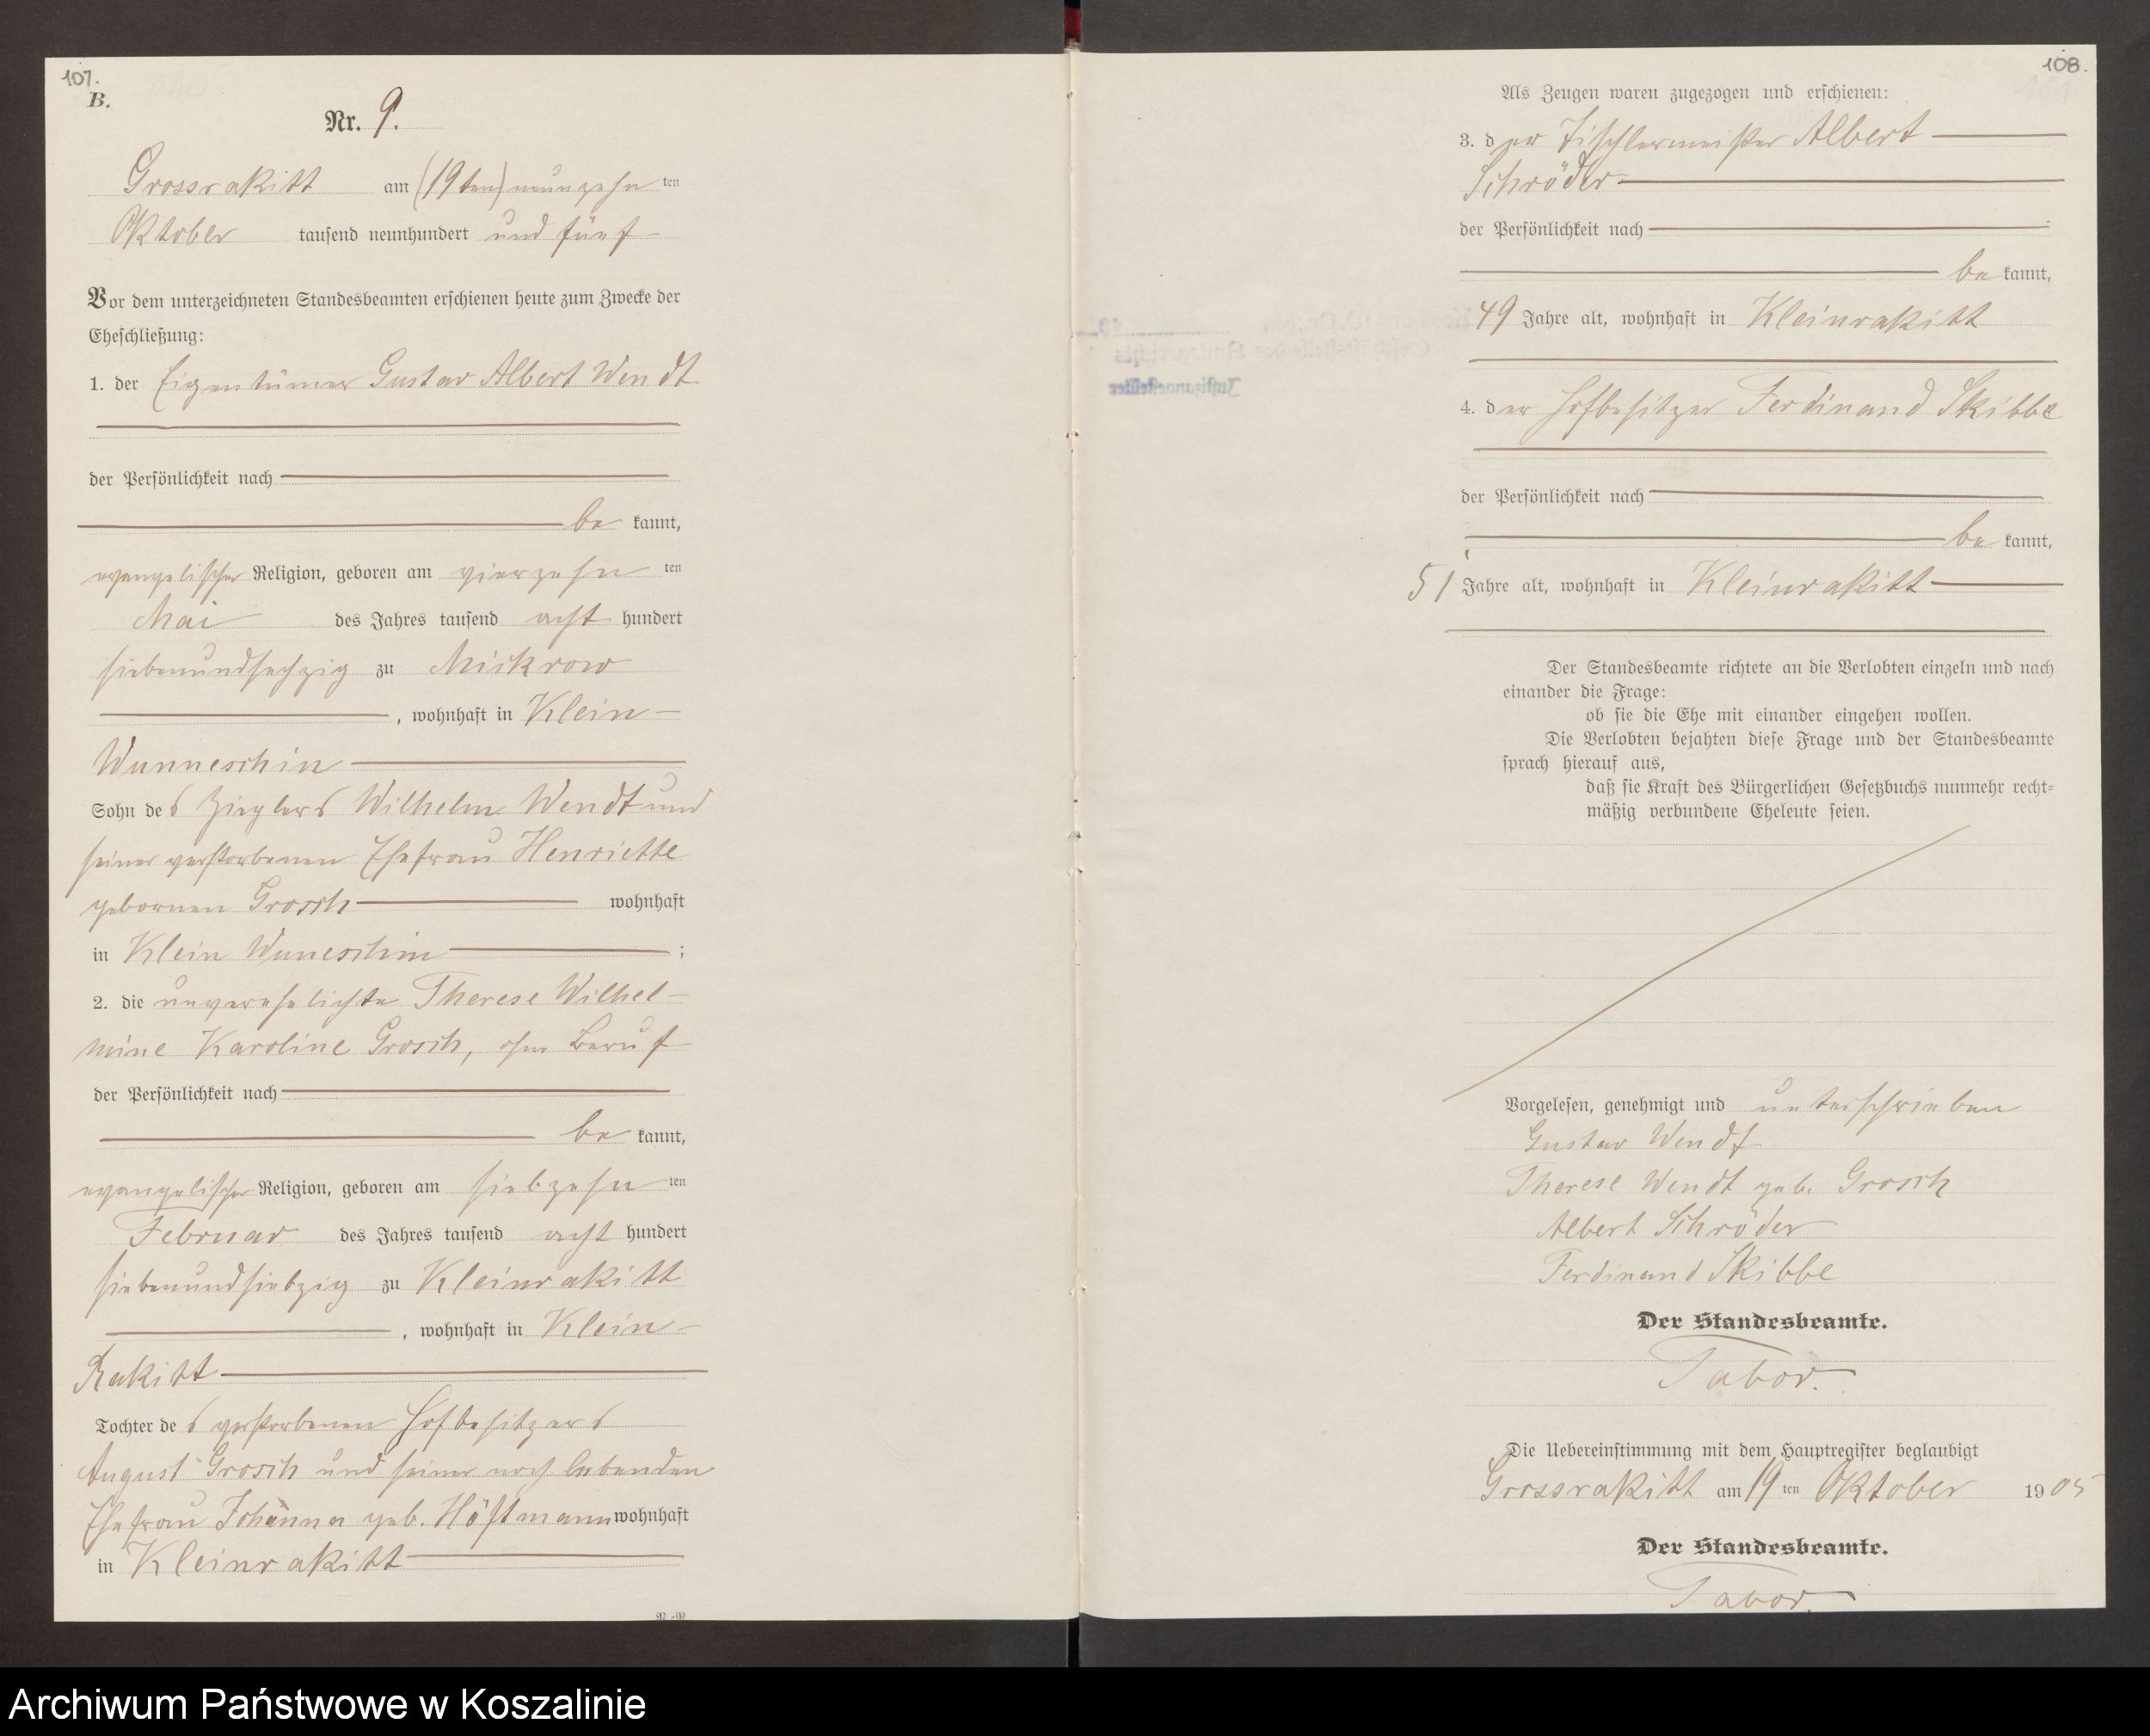 107.
B.
Nr. 9.
Grossrakitt am (19ten) neunzehn ten
Oktober tausend neunhundert und fünf
Vor dem unterzeichneten Standesbeamten erschienen heute zum Zwecke der
Eheschließung:
1. der Eigentümer Gustav Albert Wendt
der Persönlichkeit nach
be kannt,
evangelischer Religion, geboren am vierzehn ten
Mai des Jahres tausend acht hundert
siebenundsechzig zu Mickrow
, wohnhaft in Klein-
Wunneschin
Sohn des Zieglers Wilhelm Wendt und
seiner verstorbenen Ehefrau Henriette
gebornen Grosch wohnhaft
in Klein Wuneschin ;
2. die unverehelichte Therese Wilhel-
mine Karoline Grosch, ohne Beruf
der Persönlichkeit nach
be kannt,
evangelischer Religion, geboren am siebzehn ten
Februar des Jahres tausend acht hundert
siebenundsiebzig zu Kleinrakitt
, wohnhaft in Klein-
Rakitt
Tochter des verstorbenen Hofbesitzers
August Grosch und seiner noch lebenden
Ehefrau Johanna geb. Höftmann wohnhaft
in Kleinrakitt
108.
Als Zeugen waren zugezogen und erschienen:
3. der Tischlermeister Albert
Schröder
der Persönlichkeit nach
be kannt,
49 Jahre alt, wohnhaft in Kleinrakitt
4. der Hofbesitzer Ferdinand Skibbe
der Persönlichkeit nach
be kannt,
51 Jahre alt, wohnhaft in Kleinrakitt
Der Standesbeamte richtete an die Verlobten einzeln und nach
einander die Frage:
ob sie die Ehe mit einander eingehen wollen.
Die Verlobten bejahten diese Frage und der Standesbeamte
sprach hierauf aus,
daß sie Kraft des Bürgerlichen Gesetzbuchs nunmehr recht=
mäßig verbundene Eheleute seien.
Vorgelesen, genehmigt und unterschrieben
Gustav Wendt
Therese Wendt geb. Grosch
Albert Schröder
Ferdinand Skibbe
Der Standesbeamte.
Tabor.
Die Uebereinstimmung mit dem Hauptregister beglaubigt
Grossrakitt am 19 ten Oktober 1905
Der Standesbeamte.
Tabor.
Archiwum Państwowe w Koszalinie